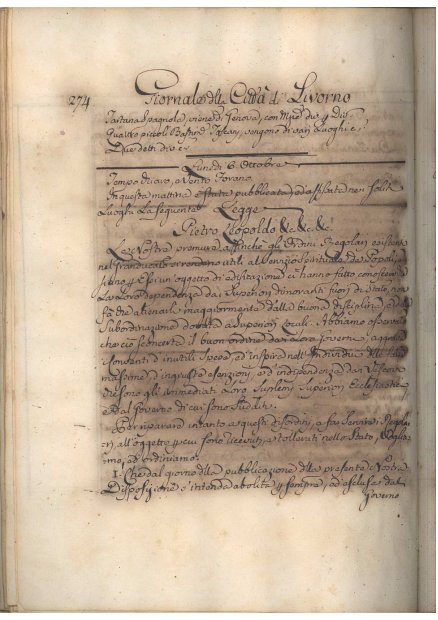 274 Giornale della Città di Livorno
Tartana Spagnola, viene di Genova, con
Quattro piccoli Bastim.ti Toscani, vengono di varj Luoghi e
Due detti di
Lunedì 6 Ottobre
Tempo buono, e Vento
In questa mattina è stata pubblicata, ed affissata nei soliti
Luoghi La seguente Legge
Pietro Leopoldo &c. &c. &c.
La Nostra premura affinchè gli Ordini Regolari esistenti
nel Granducato si rendano utili al Servizio Spirituale de Popoli, e
siano p Essi un oggetto di edificazione ci hanno fatto conoscere che
La Loro dependenza dai Superiori dimoranti fuori di Stato, non
fà che alienarli maggiormente dalla buona disciplina, e dalla
Subordinazione dovuta ai Superiori Locali. Abbiamo osservato
che ciò sconcerta il buon ordine dei Loro Governi, aggrava
i Conventi d'inutili Spese, ed inspira nell'Individui delle
massime d'ingiuste esenzioni, e d'independenza dai Vescovi
che sono gl'immediati Loro Superiori Ecclesiastici,
e dal Governo di cui sono Sudditi.
Per riparare intanto a questi disordini, e far servire i Regola-
ri all'oggetto p cui sono ricevuti, e tollerati nello Stato, Voglia-
mo, ed ordiniamo.
1. Che dal giorno della pubblicazione della presente Nostra
Disposizione s'intenda abolita p sempre, ed esclusa dal
Governo